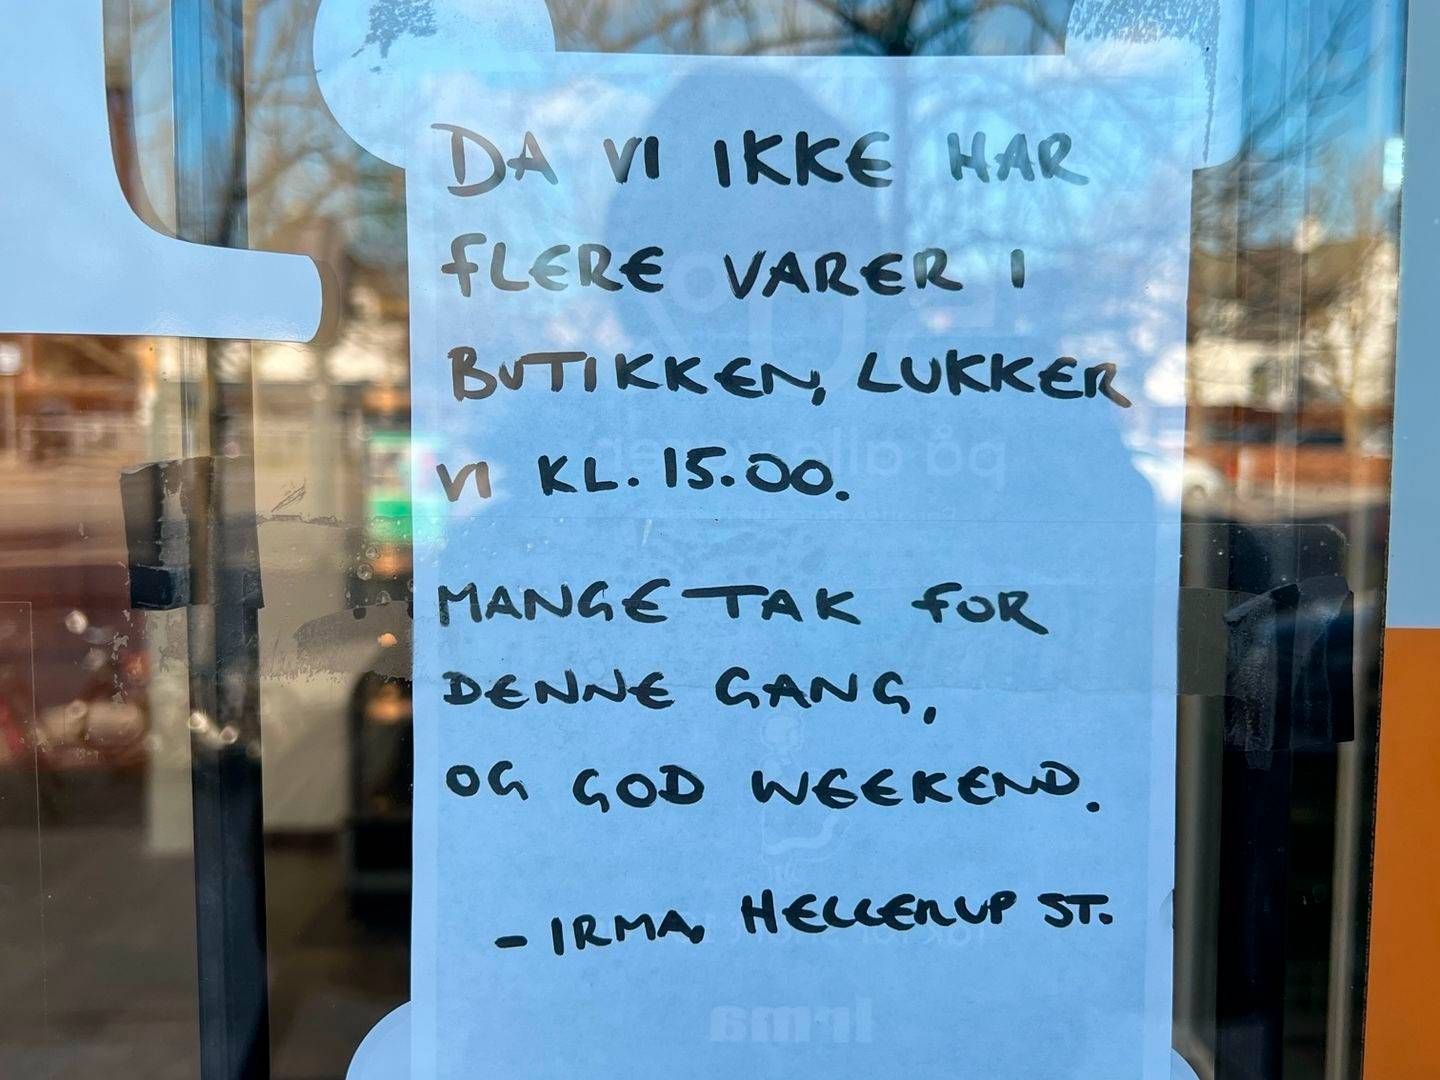 DA VI IKKE HAR
FLERE VARER I
BUTIKKEN, LUKKER
VI KL. 15.00.
MANGE TAK FOR
DENNE GANG,
OG GOD WEEKEND.
- IRMA, HELLERUP ST.
50%
på alle varer
Irma